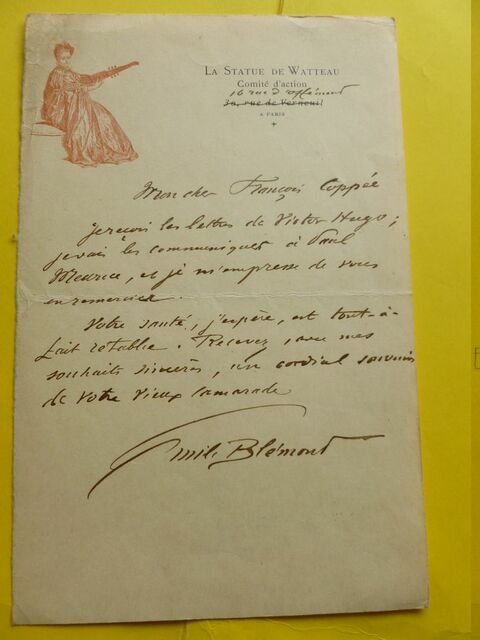 La Statue de Watteau
Comité d'action
16 rue d'Offémont
30, rue de Verneuil
A PARIS
Mon cher François Coppée
je reçois les lettres de Victor Hugo ;
je vais les communiquer à Paul
Meurice, et je m'empresse de vous
en remercier.
Votre santé, j'espère, est tout-à-
fait rétablie. Recevez, avec mes
souhaits sincères, un cordial souvenir
de votre vieux camarade
Emile Blémont